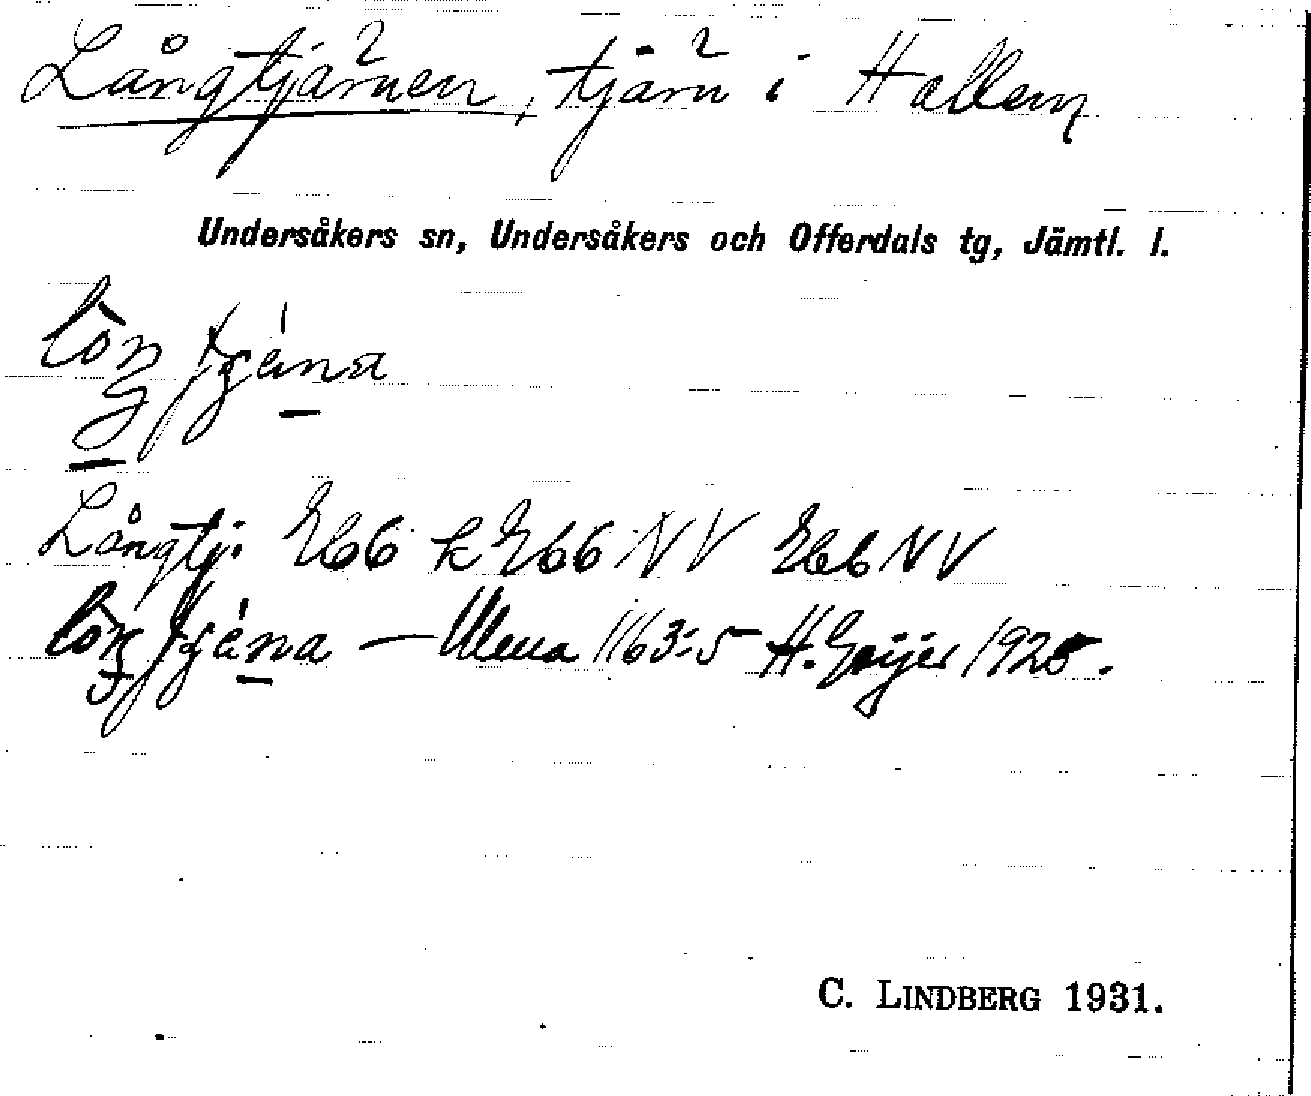 Långtjärnen, tjärn i Hallem
Undersåkers sn, Undersåkers och Offerdals tg, Jämtl. l.
Långtj. Eb6 k Eb6 NV Eb6 NV
— Ulma 1163:5 H. Geijer 1925.
C. LINDBERG 1931.